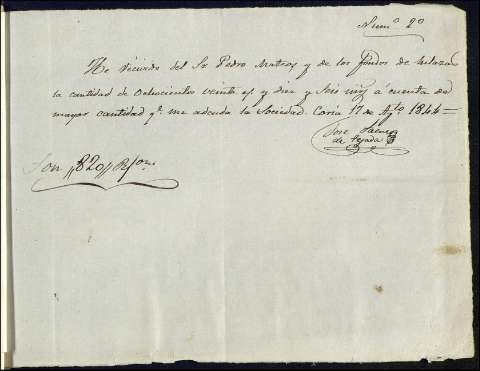 Num.º 2º
He recivido del Sr. Pedro Mateos y de los fondos de
la cantidad de Ochocientos veinte y diez y seis mrs á cuenta de
mayor cantidad q.e me adeuda la Sociedad. Coria 17 de Ag.to 1844=
José Saenz
de Tejada
Son ,,820,, R.s on.s